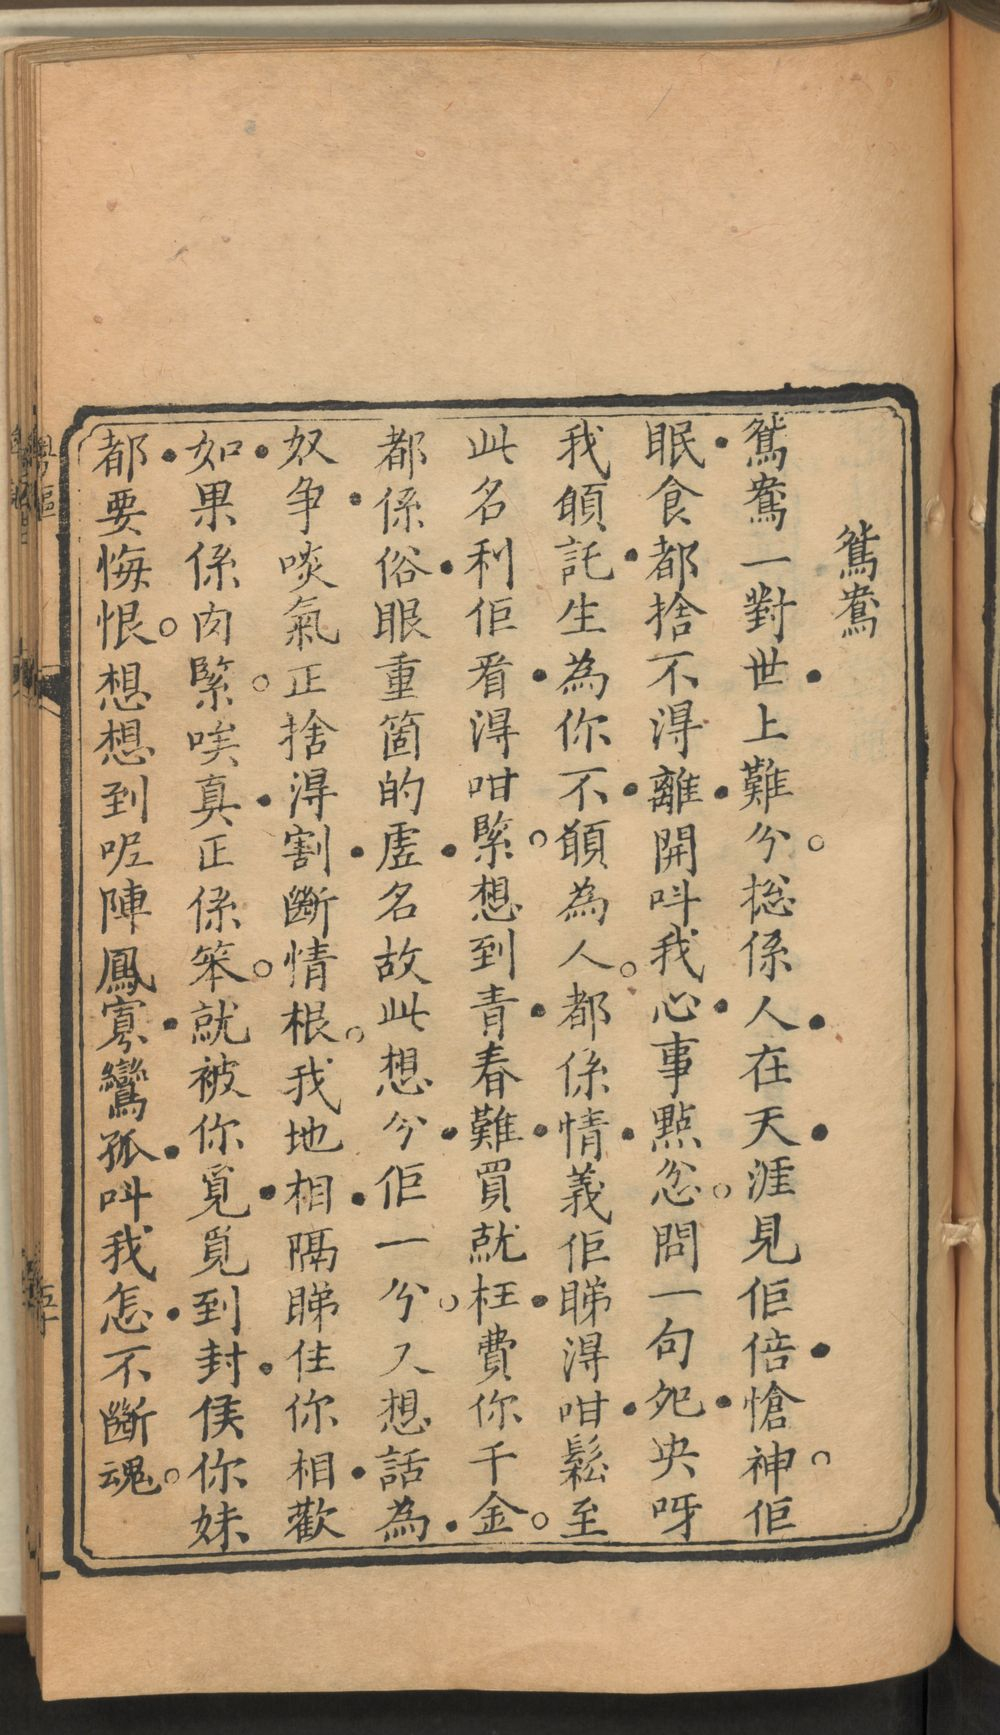 鴛鴦
鴛鴦一對世上難分捴係人在天涯見佢倍愴神佢
眠食都捨不得離開呌我心事點忿問一句夗央呀
我願託生為你不願為人都係情義佢睇得咁鬆至
此名利佢看得咁緊想到青春難買就枉費你千金
都係俗眼重箇的虗名故此想分佢一分又想話為
奴争啖氣正捨得割斷情根我地相隔睇住你相歡
如果係肉緊唉真正係笨就被你覔覔到封侯你妹
都要悔恨想想到呢陣鳳寡鸞孤呌我怎不斷魂